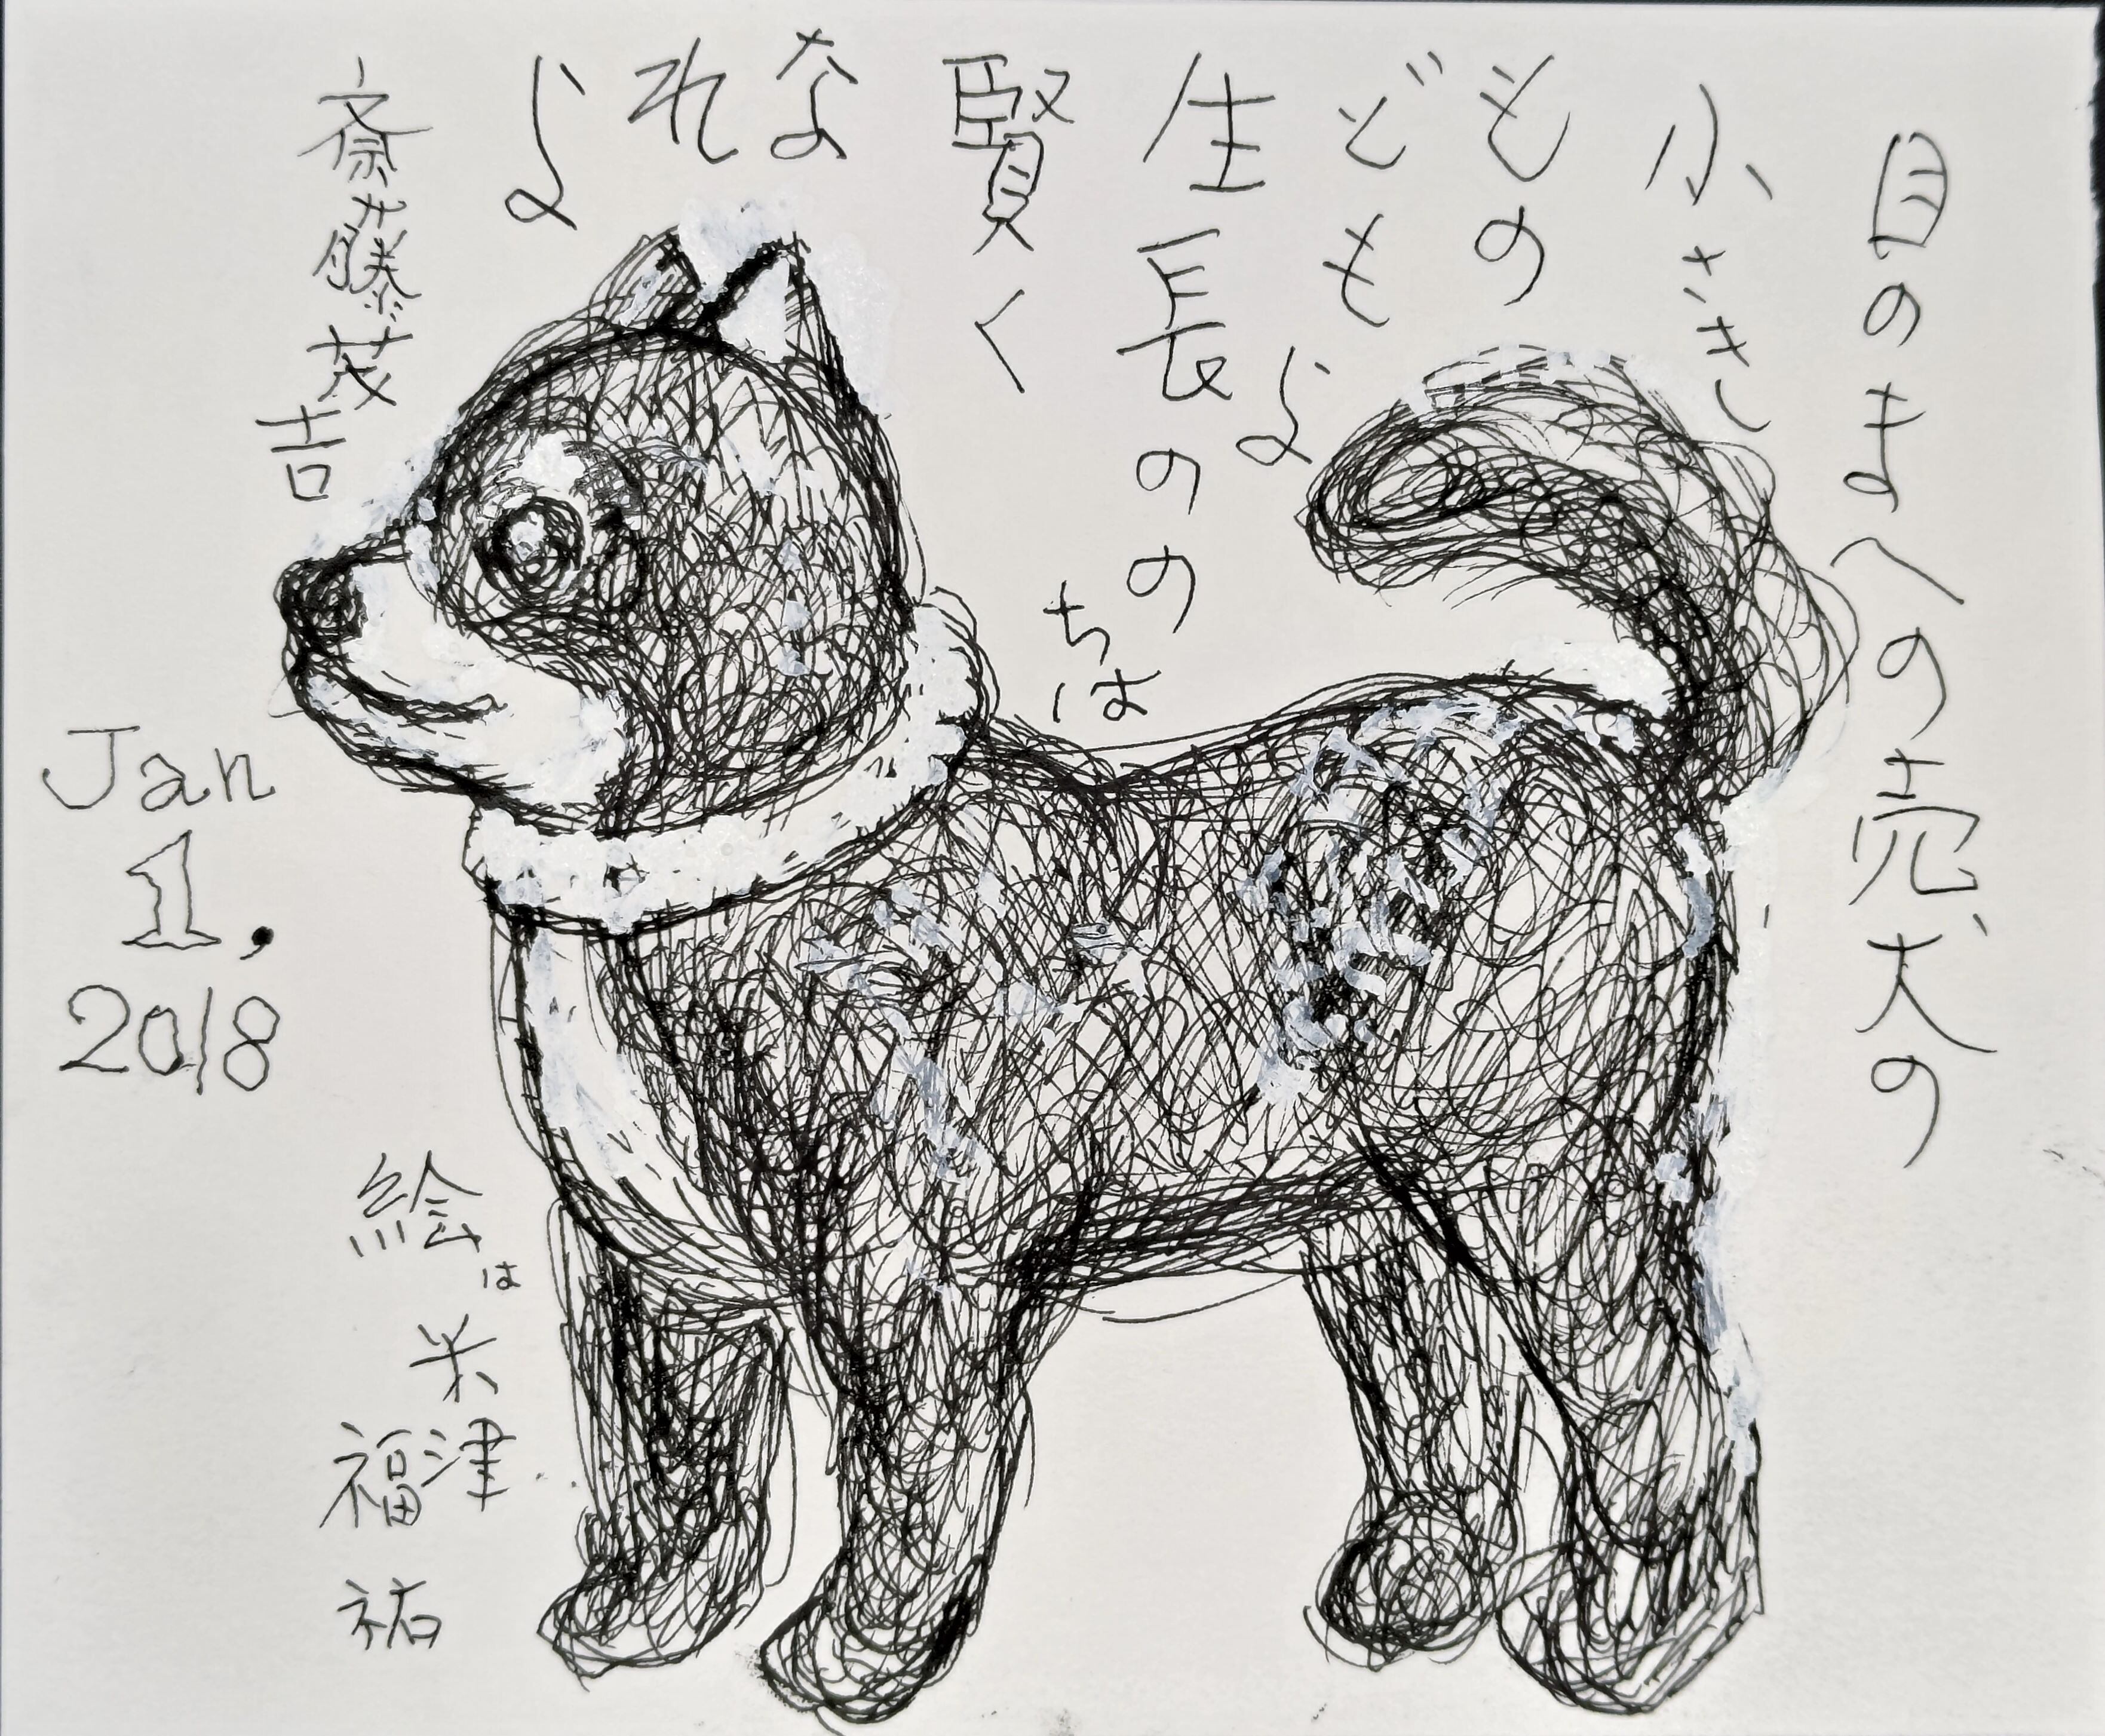 目のまへの売犬の
小さき
もの
どもよ
生長ののちは
賢く
なれよ
斎藤茂吉
Jan
1,
2018
絵は
米津
福祐